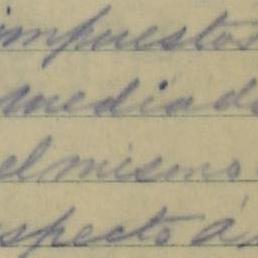 impuestos
mediado
el mismo
specto á